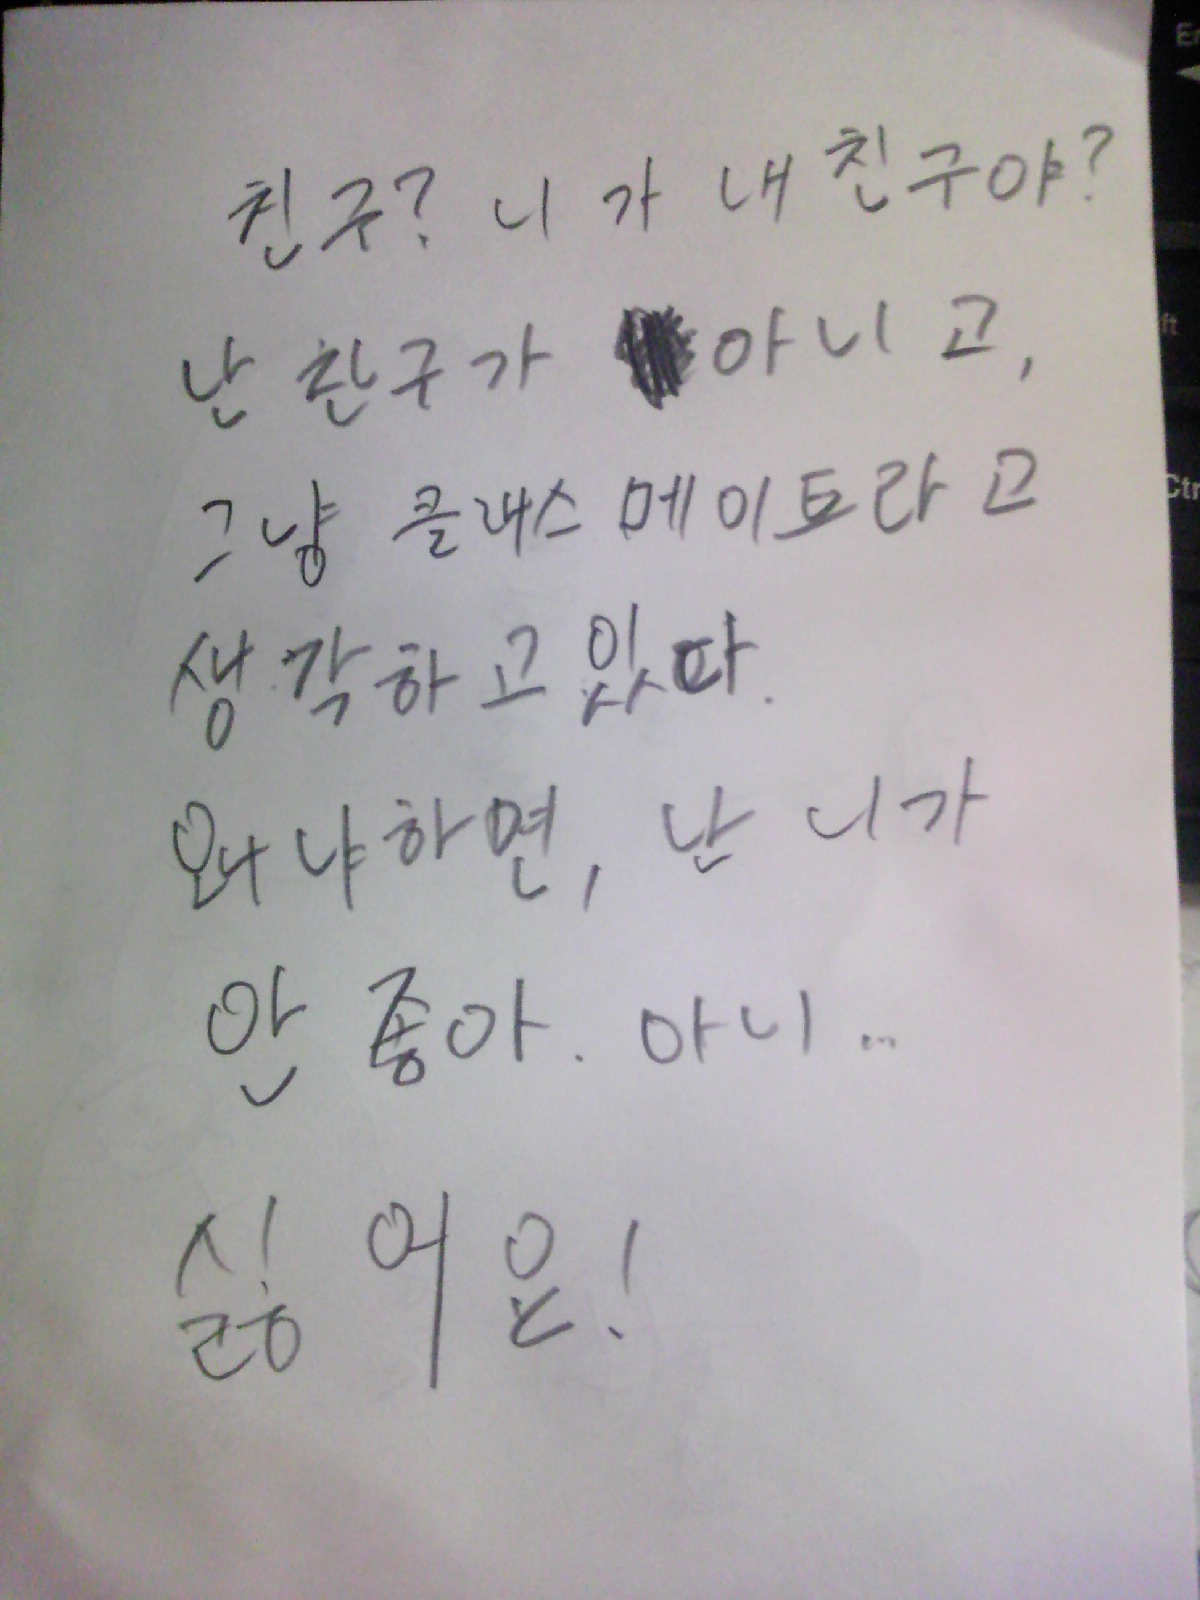 친구? 니가 내 친구야?
난 친구가 아니고,
그냥 클래스메이트라고
생각하고 있다.
왜냐하면, 난 니가
안 좋아. 아니...
싫어은!
En
ft
Ctr